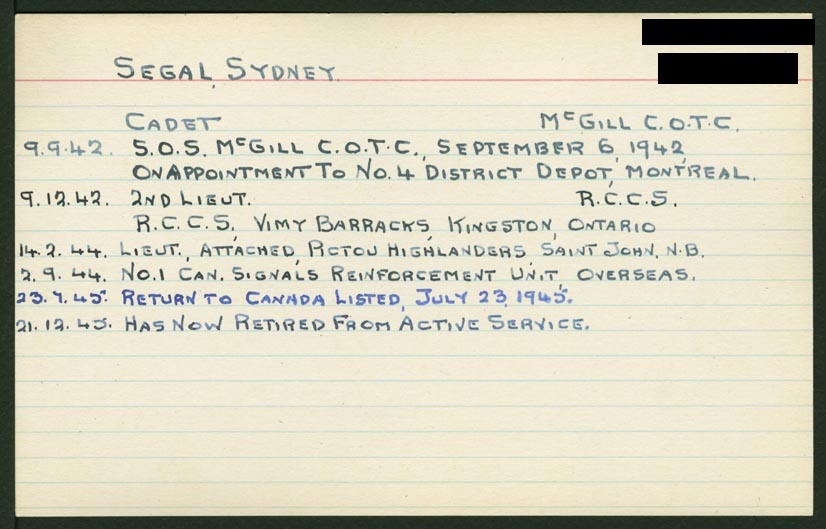 SEGAL, SYDNEY.
CADET McGILL C.O.T.C.
9.9.42. S.O.S. McGILL C.O.T.C., SEPTEMBER 6, 1942
ON APPOINTMENT TO No.4 DISTRICT DEPOT, MONTREAL.
9.12.42. 2ND LIEUT. R.C.C.S.
R.C.C.S. VIMY BARRACKS, KINGSTON, ONTARIO
14.2.44. LIEUT., ATTACHED, PICTOU HIGHLANDERS, SAINT JOHN, N.B.
2.9.44. NO.1 CAN. SIGNALS REINFORCEMENT UNIT, OVERSEAS.
23.7.45. RETURN TO CANADA LISTED, JULY 23, 1945.
21.12.45. HAS NOW RETIRED FROM ACTIVE SERVICE.